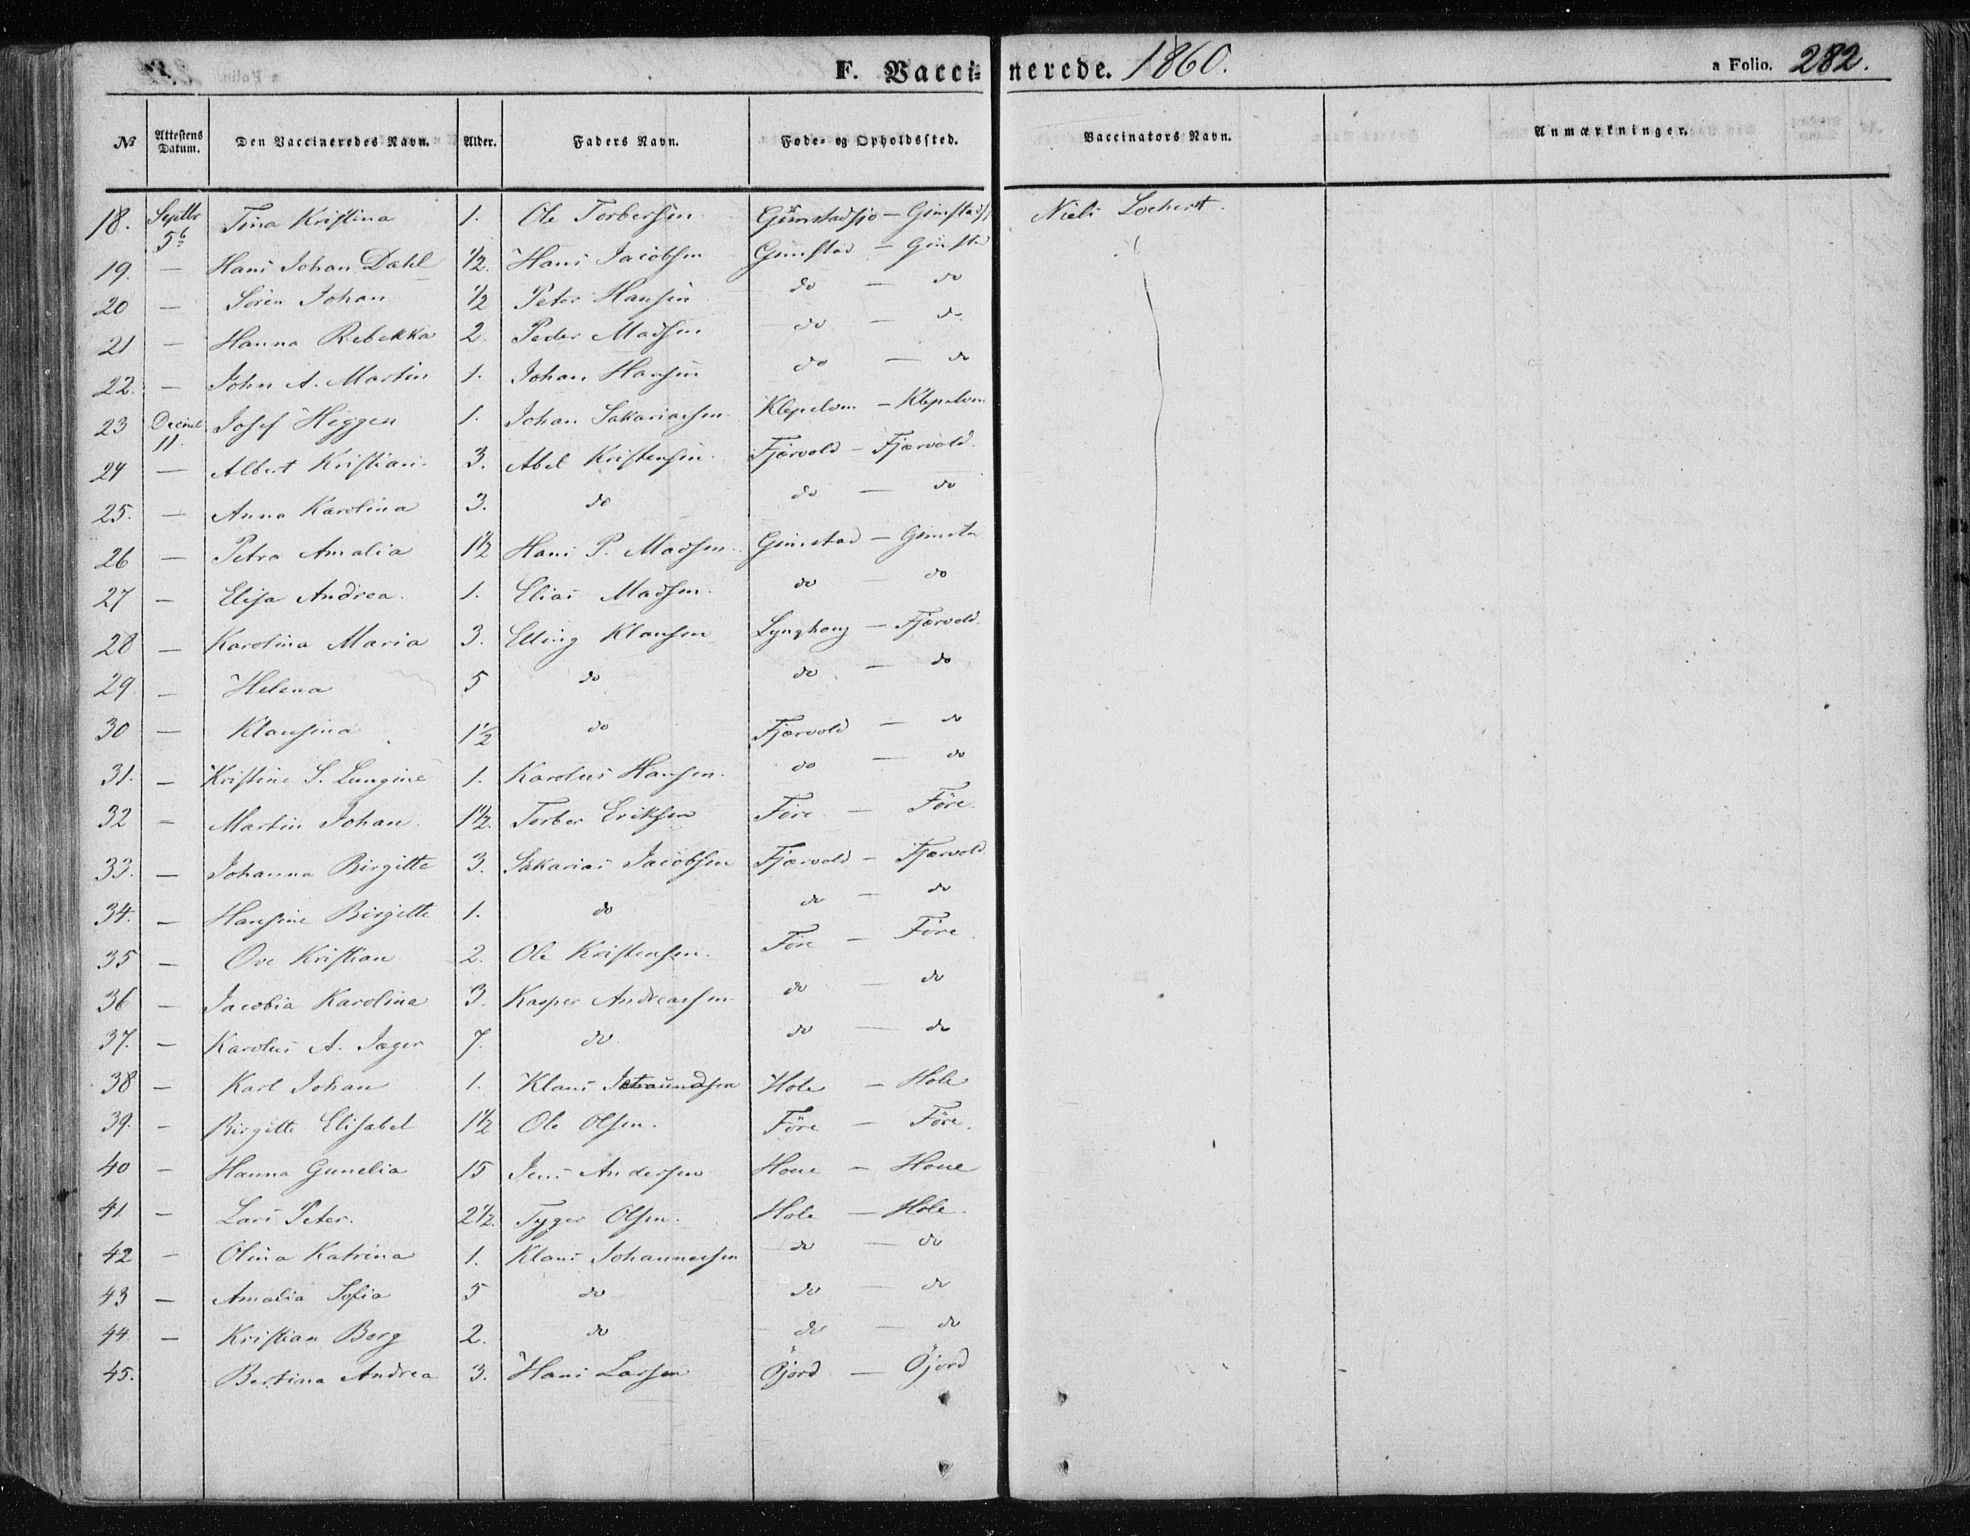 F. Vaccinerede. 1860. a Folio. 282.
№ Attestens Datum. Den Vaccineredes Navn. Alder. Faders Navn. Føde- og Opholdssted. Vaccinators Navn. Anmærkninger.
18. Septbr 5 Tina Kristina 1. Ole Torbersen Gimstadsjø — Niels Lochert.
19. — Hans Johan Dahl ½. Hans Jacobsen Gimstad — Gimstad
20 — Sören Johan ½ Peter Hansen do — do
21 — Hanna Rebekka 2. Peder Madsen do — do
22. — John A. Martin 1. Johan Hansen do — do
23 Decmb 11. Josef Heggen 1. Johan Sakariassen Klepelvm — Klepelvm
24 — Albert Kristian 3. Abel Kristensen Fjærvold — Fjærvold
25. — Anna Karolina 3. do do — do
26 — Petra Amalia 1½ Hans P. Madsen Gimstad — Gimsta
27 — Elisa Andrea 1. Elias Madsen do — do
28 — Karolina Maria 3. Elling Klausen Lynghaug — Fjærvold
29 — Helena 5 do do — do
30 — Klausina 1½ do Fjærvold — do
31. — Kristine S. Lungine 1. Karolus Hansen do — do
32 — Martin Johan 1½. Torber Eriksen Före — Före
33. — Johanna Birgitte 3. Sakarias Jacobsen Fjærvold — Fjærvold
34. — Hansine Birgitte 1. do do — do
35 — Ove Kristian 2. Ole Kristensen Före — Före
36 — Jacobia Karolina 3. Kasper Andreassen do — do
37. — Karolus A. Jæger 7. do do — do
38 — Karl Johan 1. Klaus Hole — Hole
39. — Birgitte Elisabet 1½ Ole Olsen. Före — Före.
40 — Hanna Gunelia 15 Jens Andersen Houe — Houe
41 — Lars Peter. 2½. Tyger Olsen. Hole — Hole
42 — Olina Katrina 1. Klaus Johannessen do — do
43 — Amalia Sofia 5 do do — do
44. — Kristian Berg 2. do do — do
45. Bertina Andrea 3. Hans Larsen Öjord — Öjord